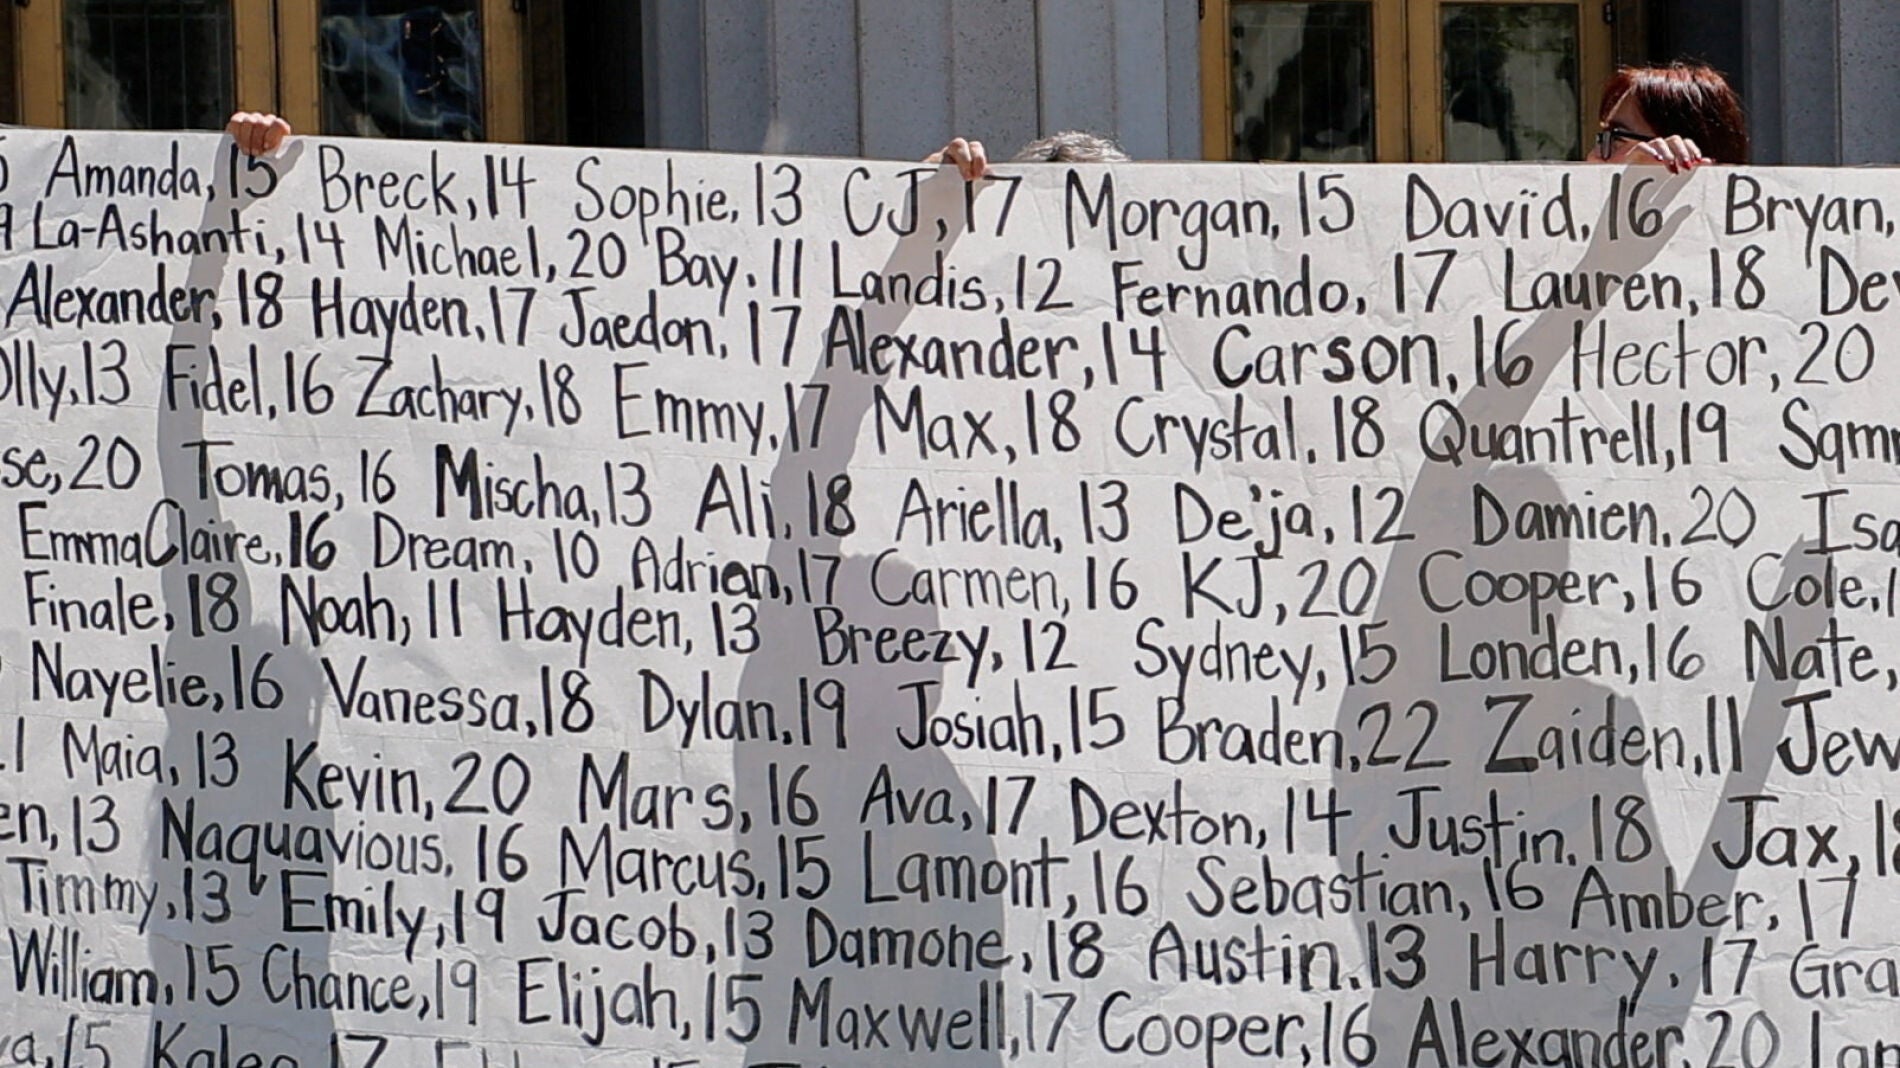 Amanda, 15 Breck, 14 Sophie, 13 CJ, 17 Morgan, 15 David, 16 Bryan,
La-Ashanti, 14 Michael, 20 Bay, 11 Landis, 12 Fernando, 17 Lauren, 18 De
Alexander, 18 Hayden, 17 Jaedon, 17 Alexander, 14 Carson, 16 Hector, 20
olly, 13 Fidel, 16 Zachary, 18 Emmy, 17 Max, 18 Crystal, 18 Quantrell, 19 Sam
se, 20 Tomas, 16 Mischa, 13 Ali, 18 Ariella, 13 De'ja, 12 Damien, 20 Isa
EmmaClaire, 16 Dream, 10 Adrian, 17 Carmen, 16 KJ, 20 Cooper, 16 Cole, 1
Finale, 18 Noah, 11 Hayden, 13 Breezy, 12 Sydney, 15 Londen, 16 Nate,
Nayelie, 16 Vanessa, 18 Dylan, 19 Josiah, 15 Braden, 22 Zaiden, 11 Jew
1 Maia, 13 Kevin, 20 Mars, 16 Ava, 17 Dexton, 14 Justin, 18 Jax, 18
en, 13 Naquavious, 16 Marcus, 15 Lamont, 16 Sebastian, 16 Amber, 17
Timmy, 13 Emily, 19 Jacob, 13 Damone, 18 Austin, 13 Harry, 17 Gra
William, 15 Chance, 19 Elijah, 15 Maxwell, 17 Cooper, 16 Alexander, 20 Lan
a, 15 Kaleo 17